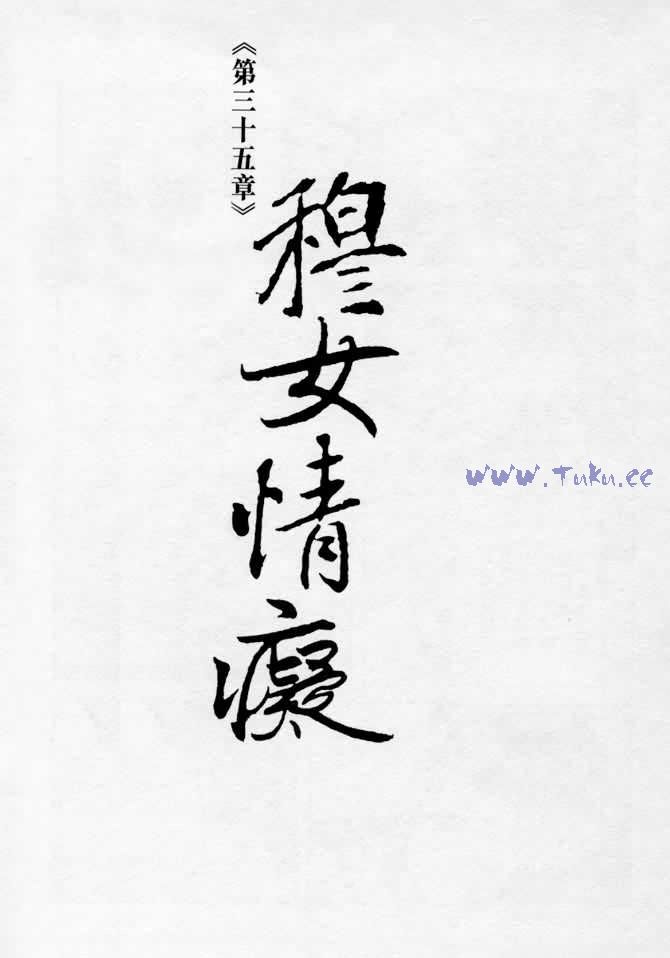 《第三十五章》
穆女情癡
www.Tuku.cc